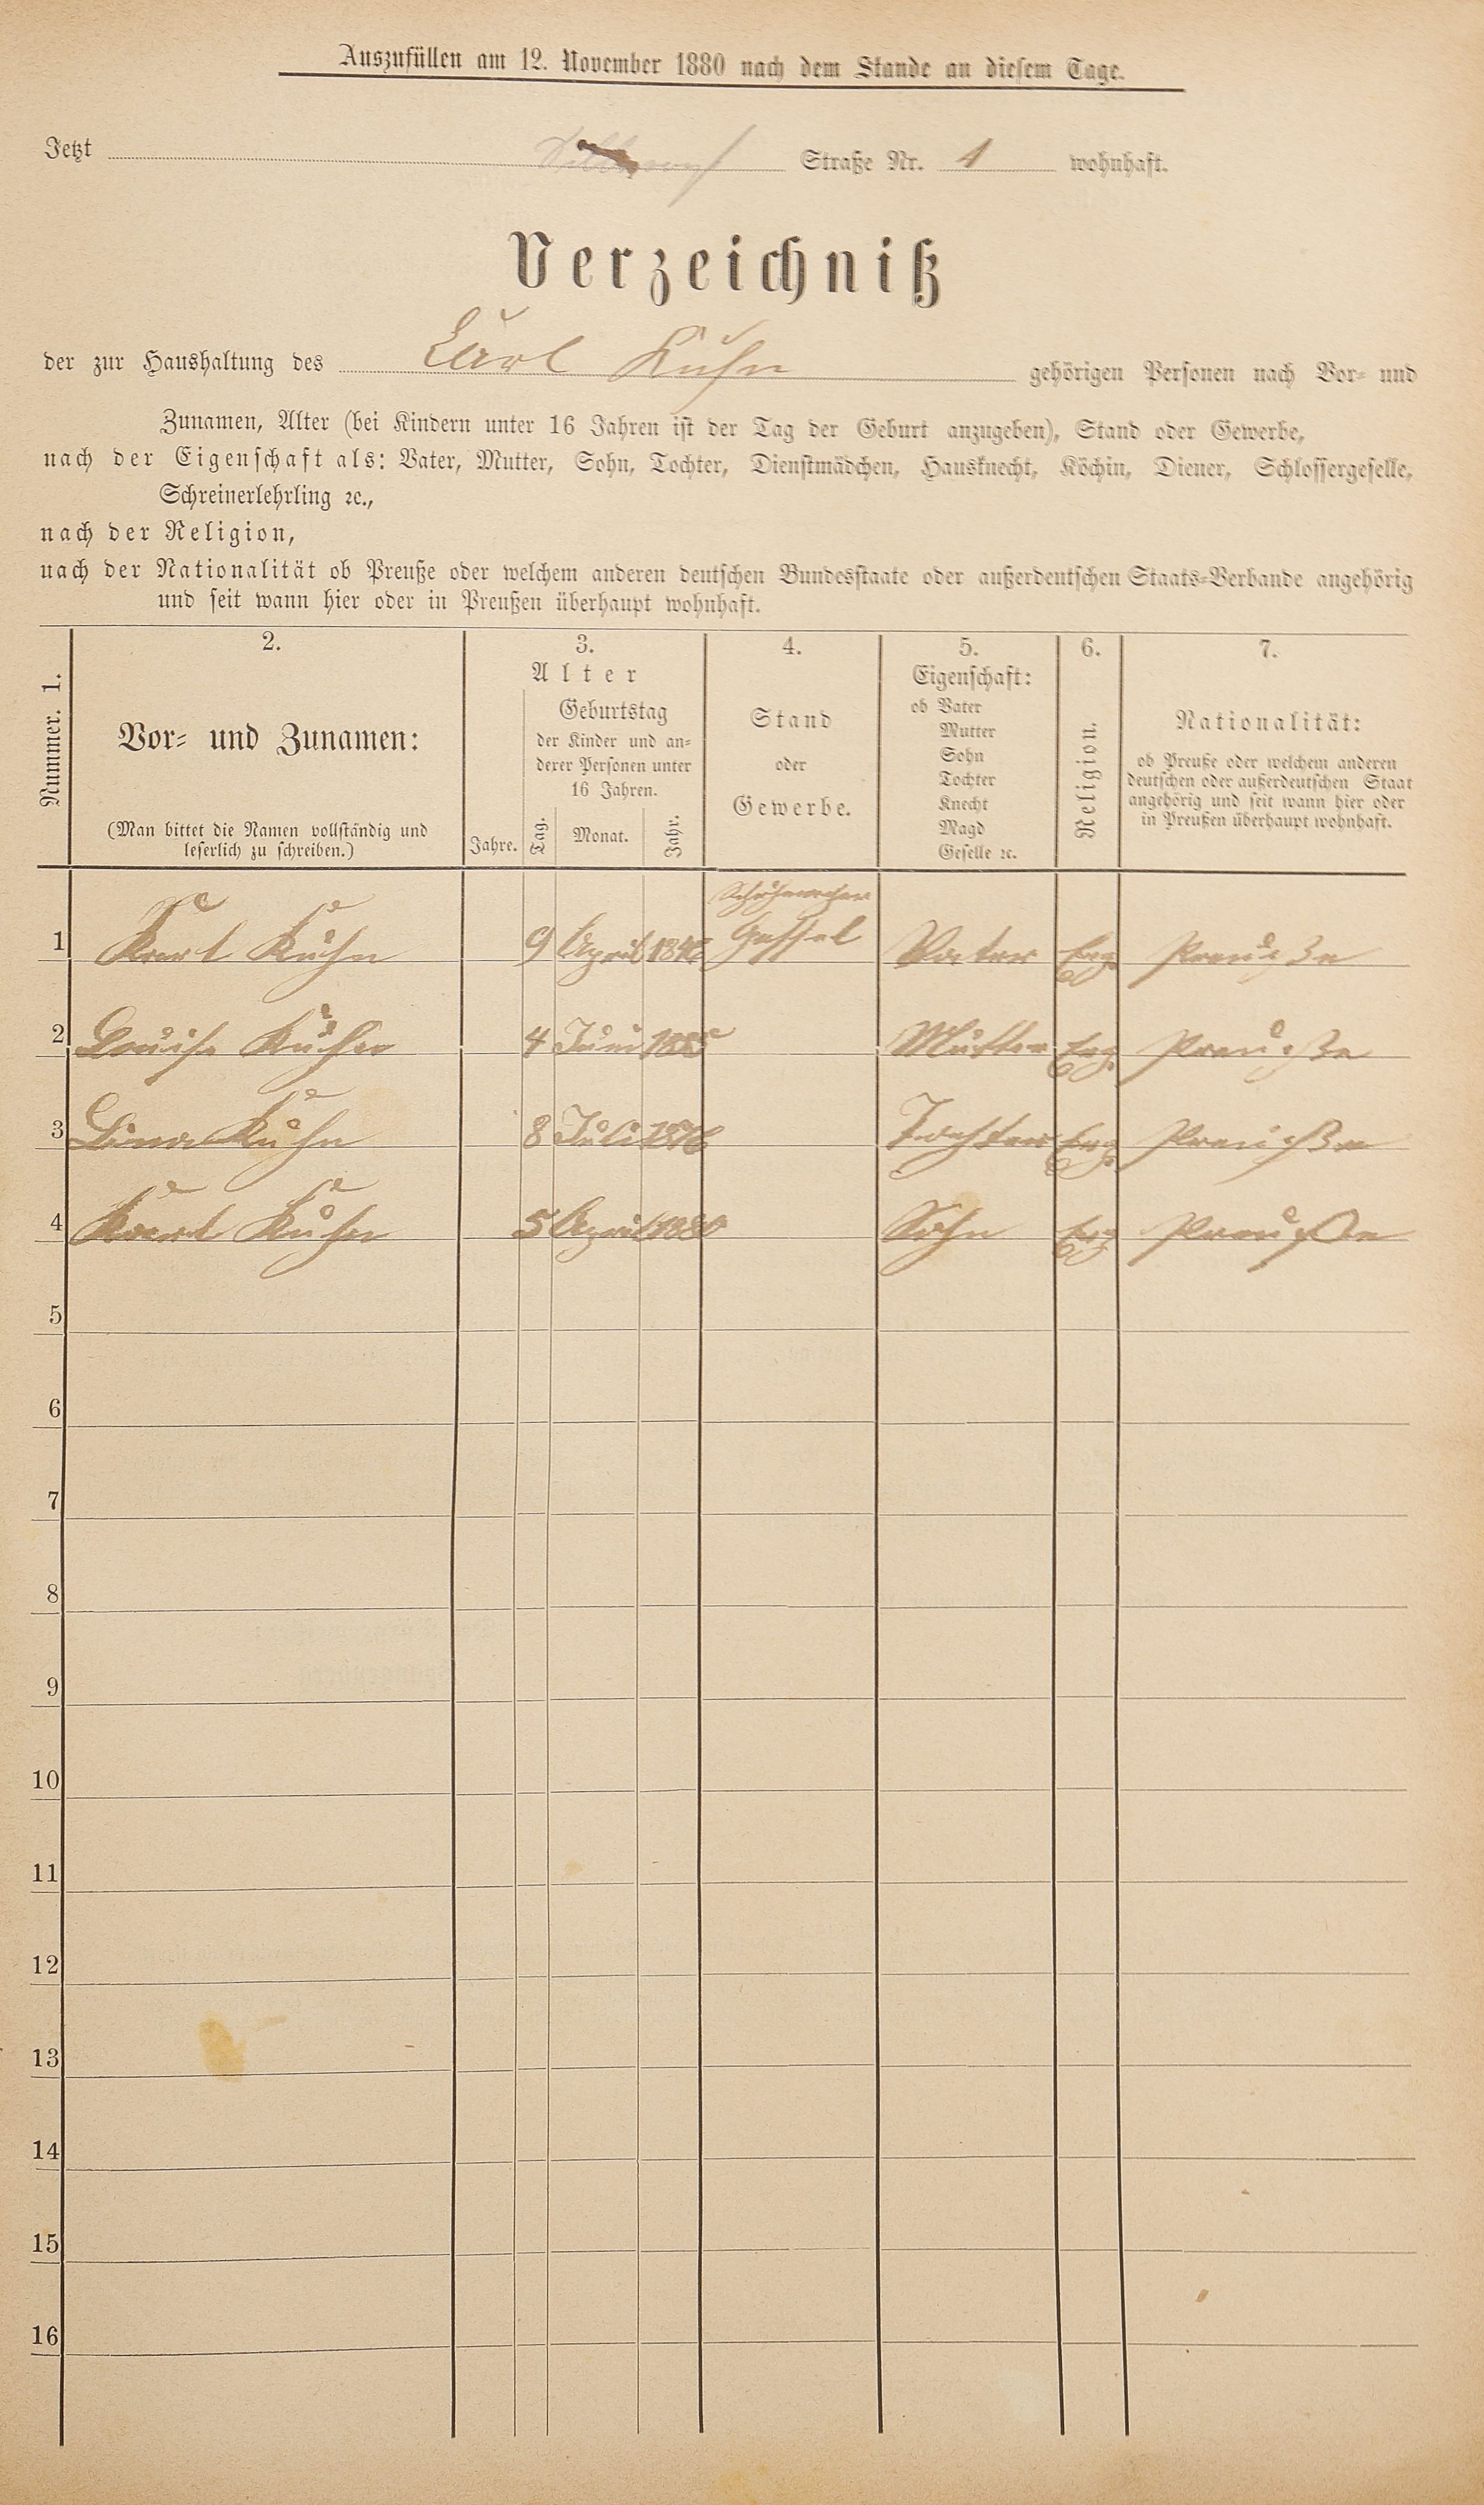 Auszufüllen am 12. November 1880 nach dem Stande an diesem Tage.
Jetzt Straße Nr. 1 wohnhaft.
Verzeichniß
der zur Haushaltung des Carl Kuhn gehörigen Personen nach Vor- und
Zunamen, Alter (bei Kindern unter 16 Jahren ist der Tag der Geburt anzugeben), Stand oder Gewerbe,
nach der Eigenschaft als: Vater, Mutter, Sohn, Tochter, Dienstmädchen, Hausknecht, Köchin, Diener, Schlossergeselle,
Schreinerlehrling ꝛc.,
nach der Religion,
nach der Nationalität ob Preuße oder welchem anderen deutschen Bundesstaate oder außerdeutschen Staats-Verbande angehörig
und seit wann hier oder in Preußen überhaupt wohnhaft.
Nummer. 1.
2.
Vor- und Zunamen:
(Man bittet die Namen vollständig und
leserlich zu schreiben.)
3.
Alter
Jahre.
Geburtstag
der Kinder und an-
derer Personen unter
16 Jahren.
Tag. Monat. Jahr.
4.
Stand
oder
Gewerbe.
5.
Eigenschaft:
ob Vater
Mutter
Sohn
Tochter
Knecht
Magd
Geselle ꝛc.
6.
Religion.
7.
Nationalität:
ob Preuße oder welchem anderen
deutschen oder außerdeutschen Staat
angehörig und seit wann hier oder
in Preußen überhaupt wohnhaft.
Schuhmacher
1 Karl Kuhn 9 April Vater Evg Preuße
2 Louise Kuhn 4 Juni Mutter Evg Preuße
3 Lina Kuhn 8 Juli 1876 Tochter Evg Preuße
4 Karl Kuhn 5 April 1880 Sohn Evg Preuße
5
6
7
8
9
10
11
12
13
14
15
16